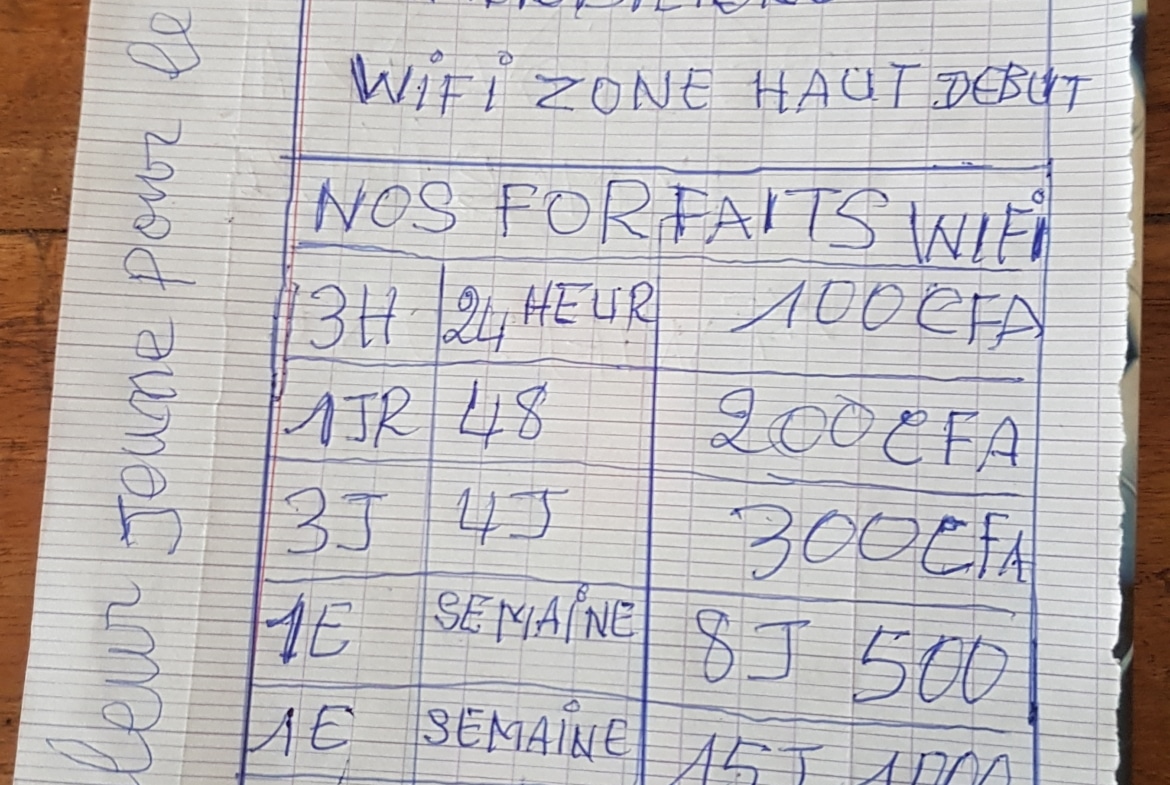 WiFi ZONE HAUT DEBUT
NOS FORFAITS WIFi
3H 24 HEUR 100 CFA
1JR 48 200 CFA
3J 4J 300 CFA
1E SEMAiNE 8J 500
1E SEMAiNE 15J 1000
leur Jaune pour le